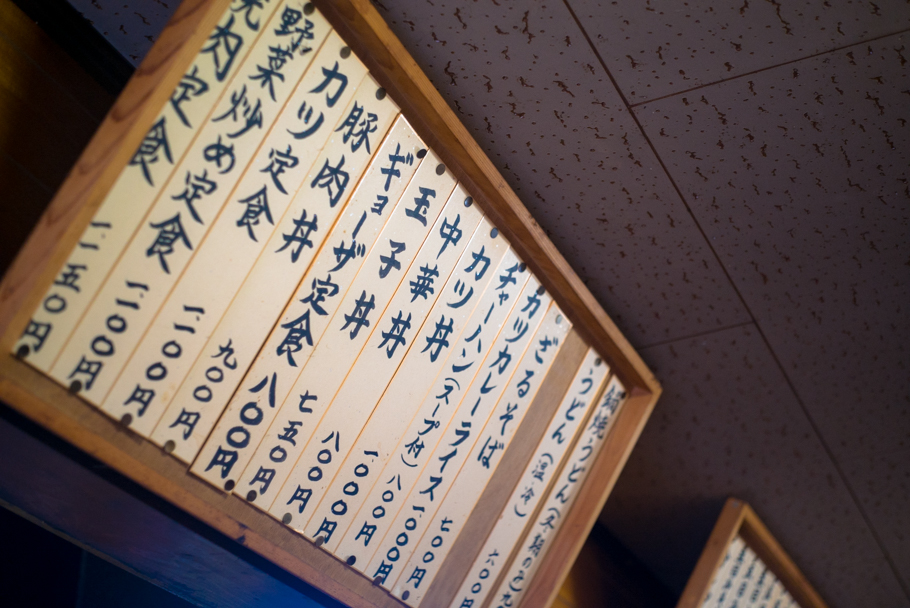 鍋焼うどん
うどん(温・冷) 六〇〇円
ざるそば 七〇〇円
カツカレーライス 一〇〇〇円
チャーハン(スープ付) 八〇〇円
カツ丼 一〇〇〇円
中華丼 八〇〇円
玉子丼 七五〇円
ギョーザ定食 八〇〇円
豚肉丼 九〇〇円
カツ定食 一一〇〇円
野菜炒め定食 一一〇〇円
焼肉定食 一一五〇円